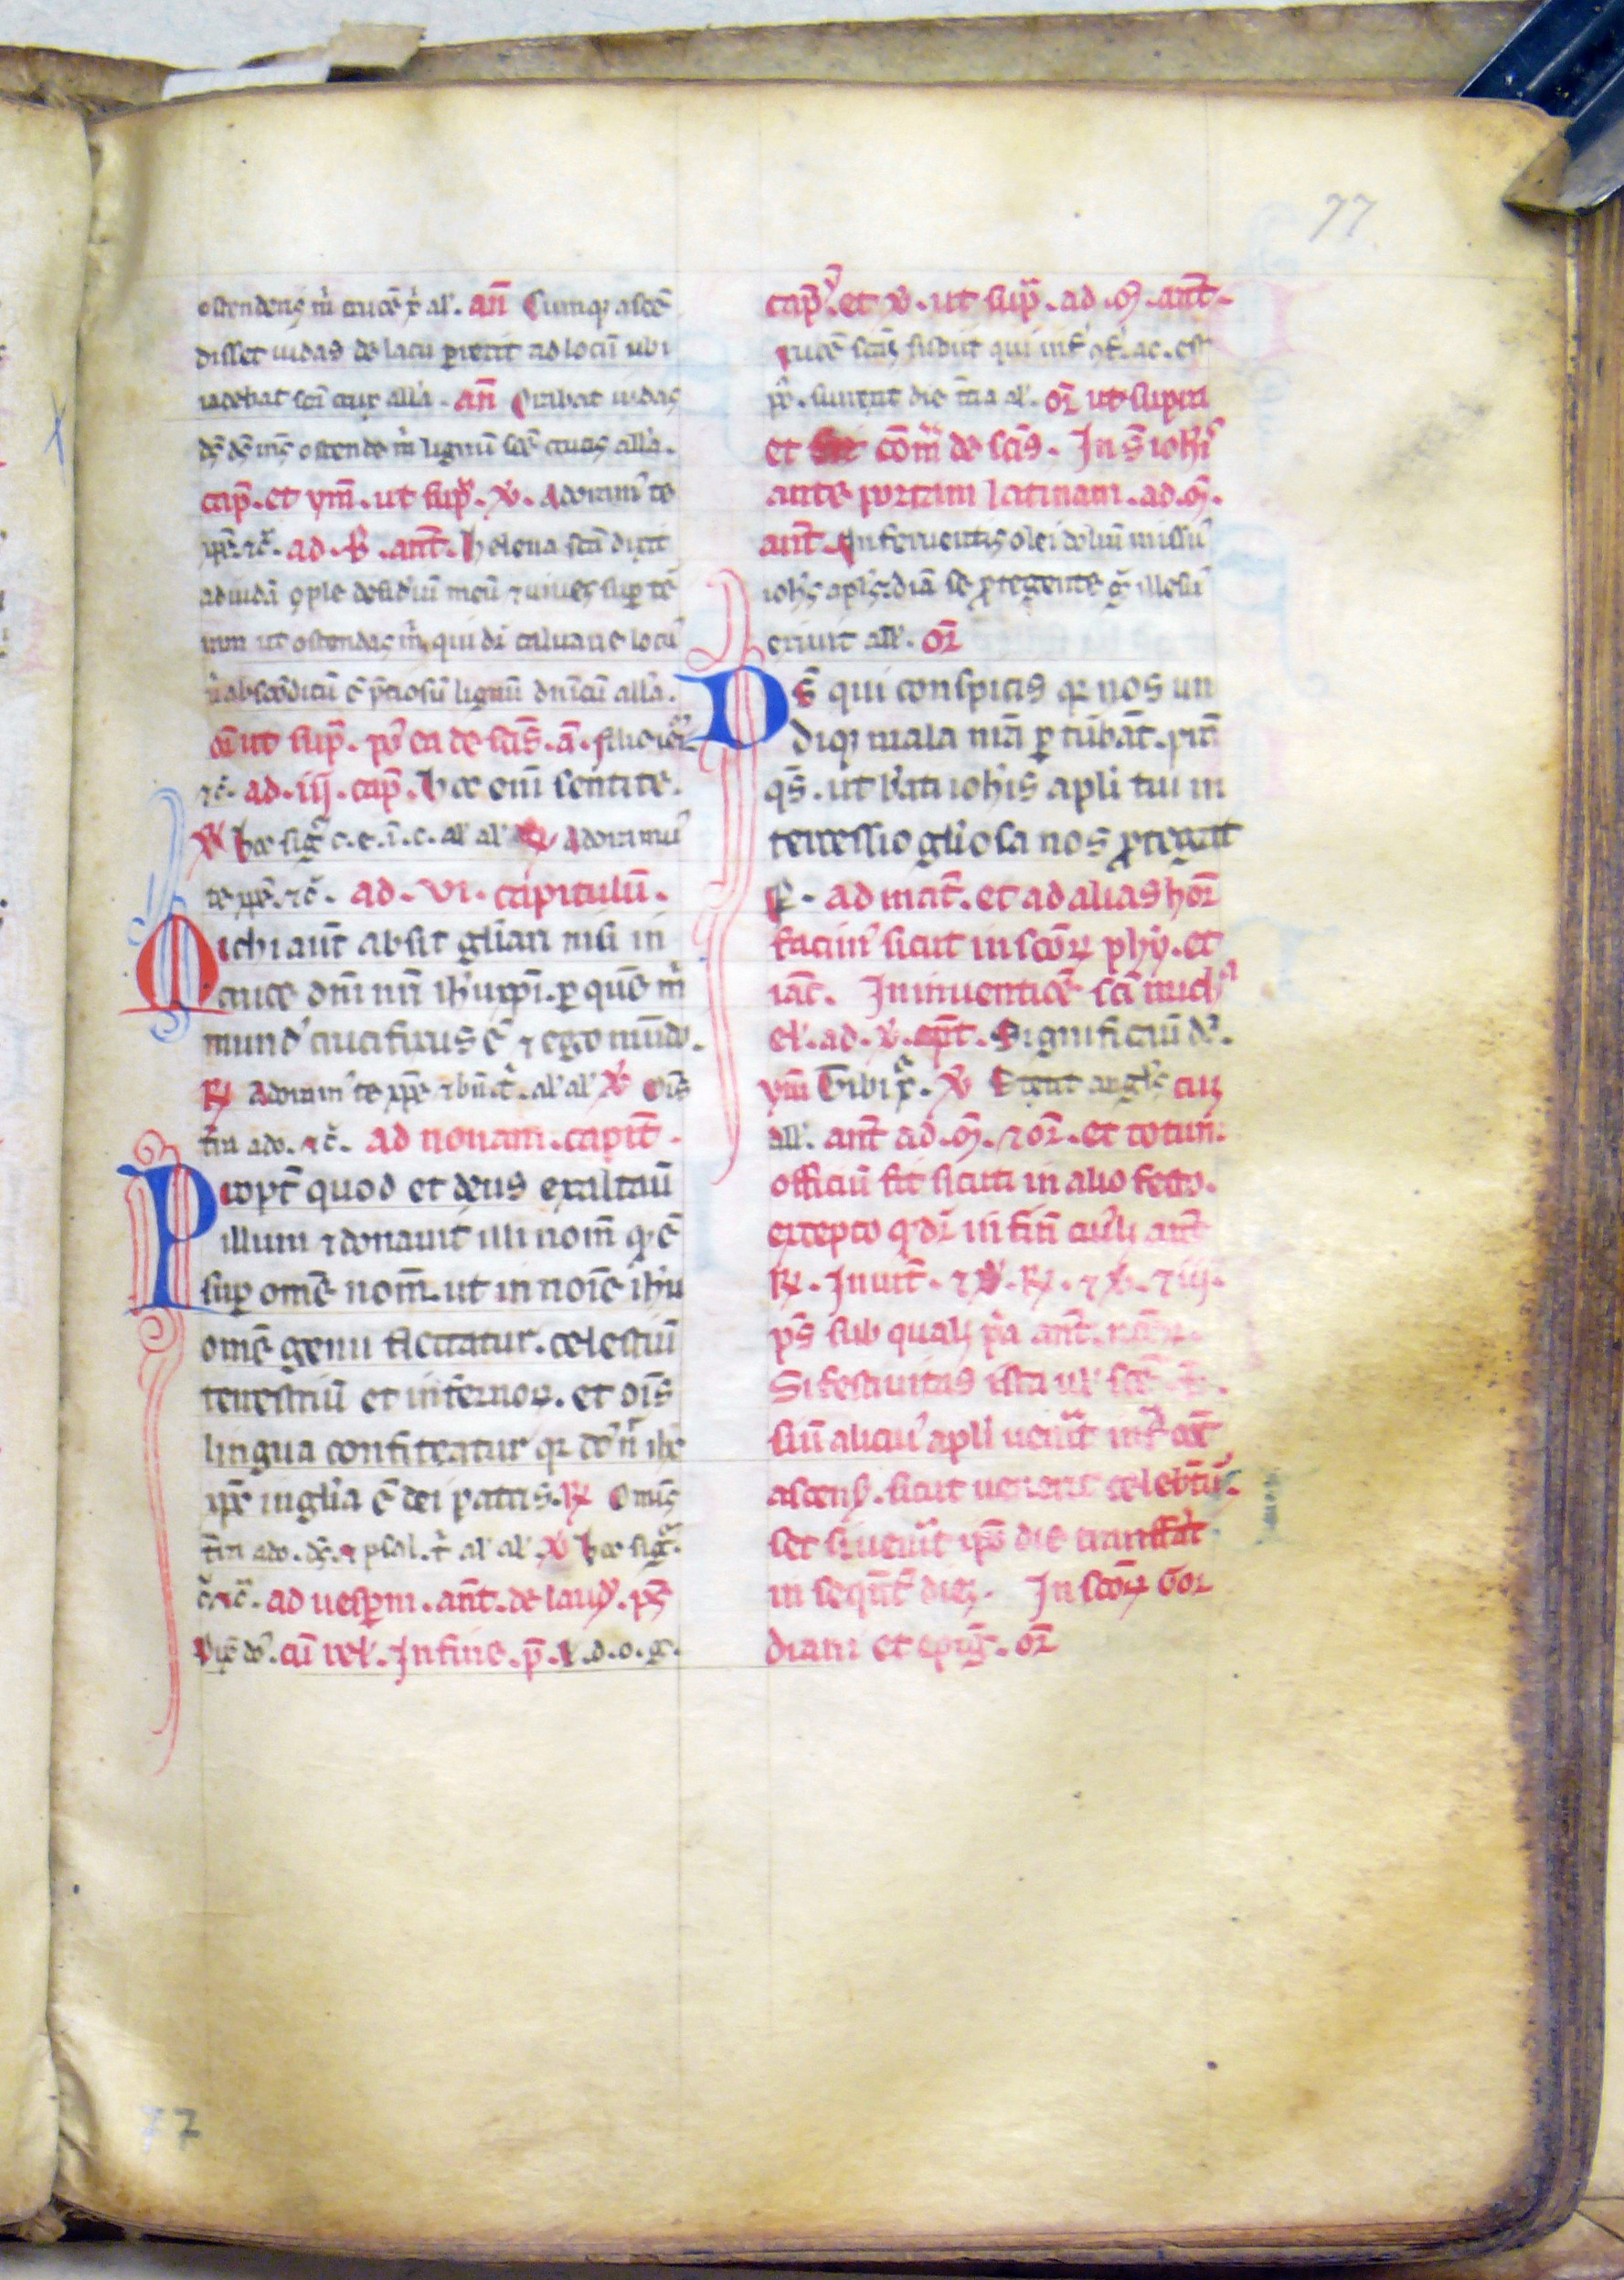 77
ostendens m̄ crucē x̄ al'. an̄ Cumq; ascē
disset iudas de lacu p̄rexit ad locū ubi
iacebat scā crux all'a. an̄ Orabat iudas
dš dš mš ostende m̄ lignū scē crucis all'a.
cap̄. et ym̄. ut sup̄. ꝟ. Adoram' te
xp̄e. ⁊c̄. ad. B. ant̄. Helena scā dixit
ad iudā ꝯple desid'iū meū ⁊ uiues sup̄ te
rram ut ostendas m̄ qui dr̄ caluarie locu'
ubi abscōditū ē p̄ciosū lignū dn̄icū all'a.
or̄ ut sup̄. po' ea de scīs. a. filie ier̄
⁊c̄. ad. iij. cap̄. Hoc enī sentite.
℟ Hoc sig̃ c. e. i. c. al' al' ꝟ Adoramu'
te xp̄e. ⁊c̄. ad. vi. capitulū.
Michi aut̄ absit gl̄iari nisi in
cruce dn̄i nr̄i ih'u xp̄i. p quē m̄
mund' crucifixus ē ⁊ ego mūdo.
℟ Adoram' te xp̄e ⁊ bn̄. t̄. al' al' ꝟ Oīs
t̄ra ado. ⁊c̄. ad nonam. capit̄.
Propt̄ quod et deus exaltauit
illum ⁊ donauit illi nom̄ q' ē
sup omē nom̄. ut in noīe ih'u
omē genu flectatur. celestiū
terrestriū et infernoꝝ. et oīs
lingua confiteatur qꝛ do' n̄r ih'c
xp̄c in gl̄ia ē dei patris. ℟ Omīs
t̄ra ado. dē. ⁊ psal. t̄ al' al'. ꝟ Hoc sig̃.
c̄. ⁊c̄. ad uesp̄m. ant̄. de laud'. p̄s
Dix̄ do'. cū rel'. In fine. p̄. L. d. o. g.
cap̄. et ꝟ. ut sup̄. ad. m̄. ant̄.
Crucē scām subiit qui inf̄ ꝯf̄. ac. est
po. surrexit die t̄cia al'. or̄ ut supra
et com̄ de scīs. In s̄ ioh'i
ante portam latinam. ad. m̄.
ant̄. In feruentis olei doliū missu'
ioh's apl's. diā se p̄tegente g̃ illesu'
exiuit all'. or̄
Dš qui conspicis qꝛ nos un
diq; mala nrā p̄turbāt. pr̄
q̄s. ut b'ati ioh'is apl'i tui in
tercessio gl'iosa nos p̄tegat
P. ad mat̄. et ad alias hor̄
faciu' sicut in scōꝝ phy. et
iac̄. In inuentiōe scī mich'
el'. ad. ꝟ. cap̄t. Significauit d's.
ym̄ Tibi x̄. ꝟ Stetit angl's cuꝫ
all'. ant̄ ad. m̄. ⁊ or̄. et totum
officiū fit sicut in alio festo.
excepto q'd dr̄ in fin̄ cui'lꝫ ant̄
℟. Inuit̄. ⁊ ꝟ. ℟. ⁊ ꝟ. ⁊ iij.
p̄s sub qualꝫ p̄a ant̄.
Si festiuitas ista ul' scē
siū alicui' apl'i uen̄it inf̄ oct̄
ascens̄. sicut uenerit celebrat'.
set si uen̄it ip̄o die transfāt
in sequēt̄ diē. In scōꝝ Gor
diani et epig̃. or̄
77